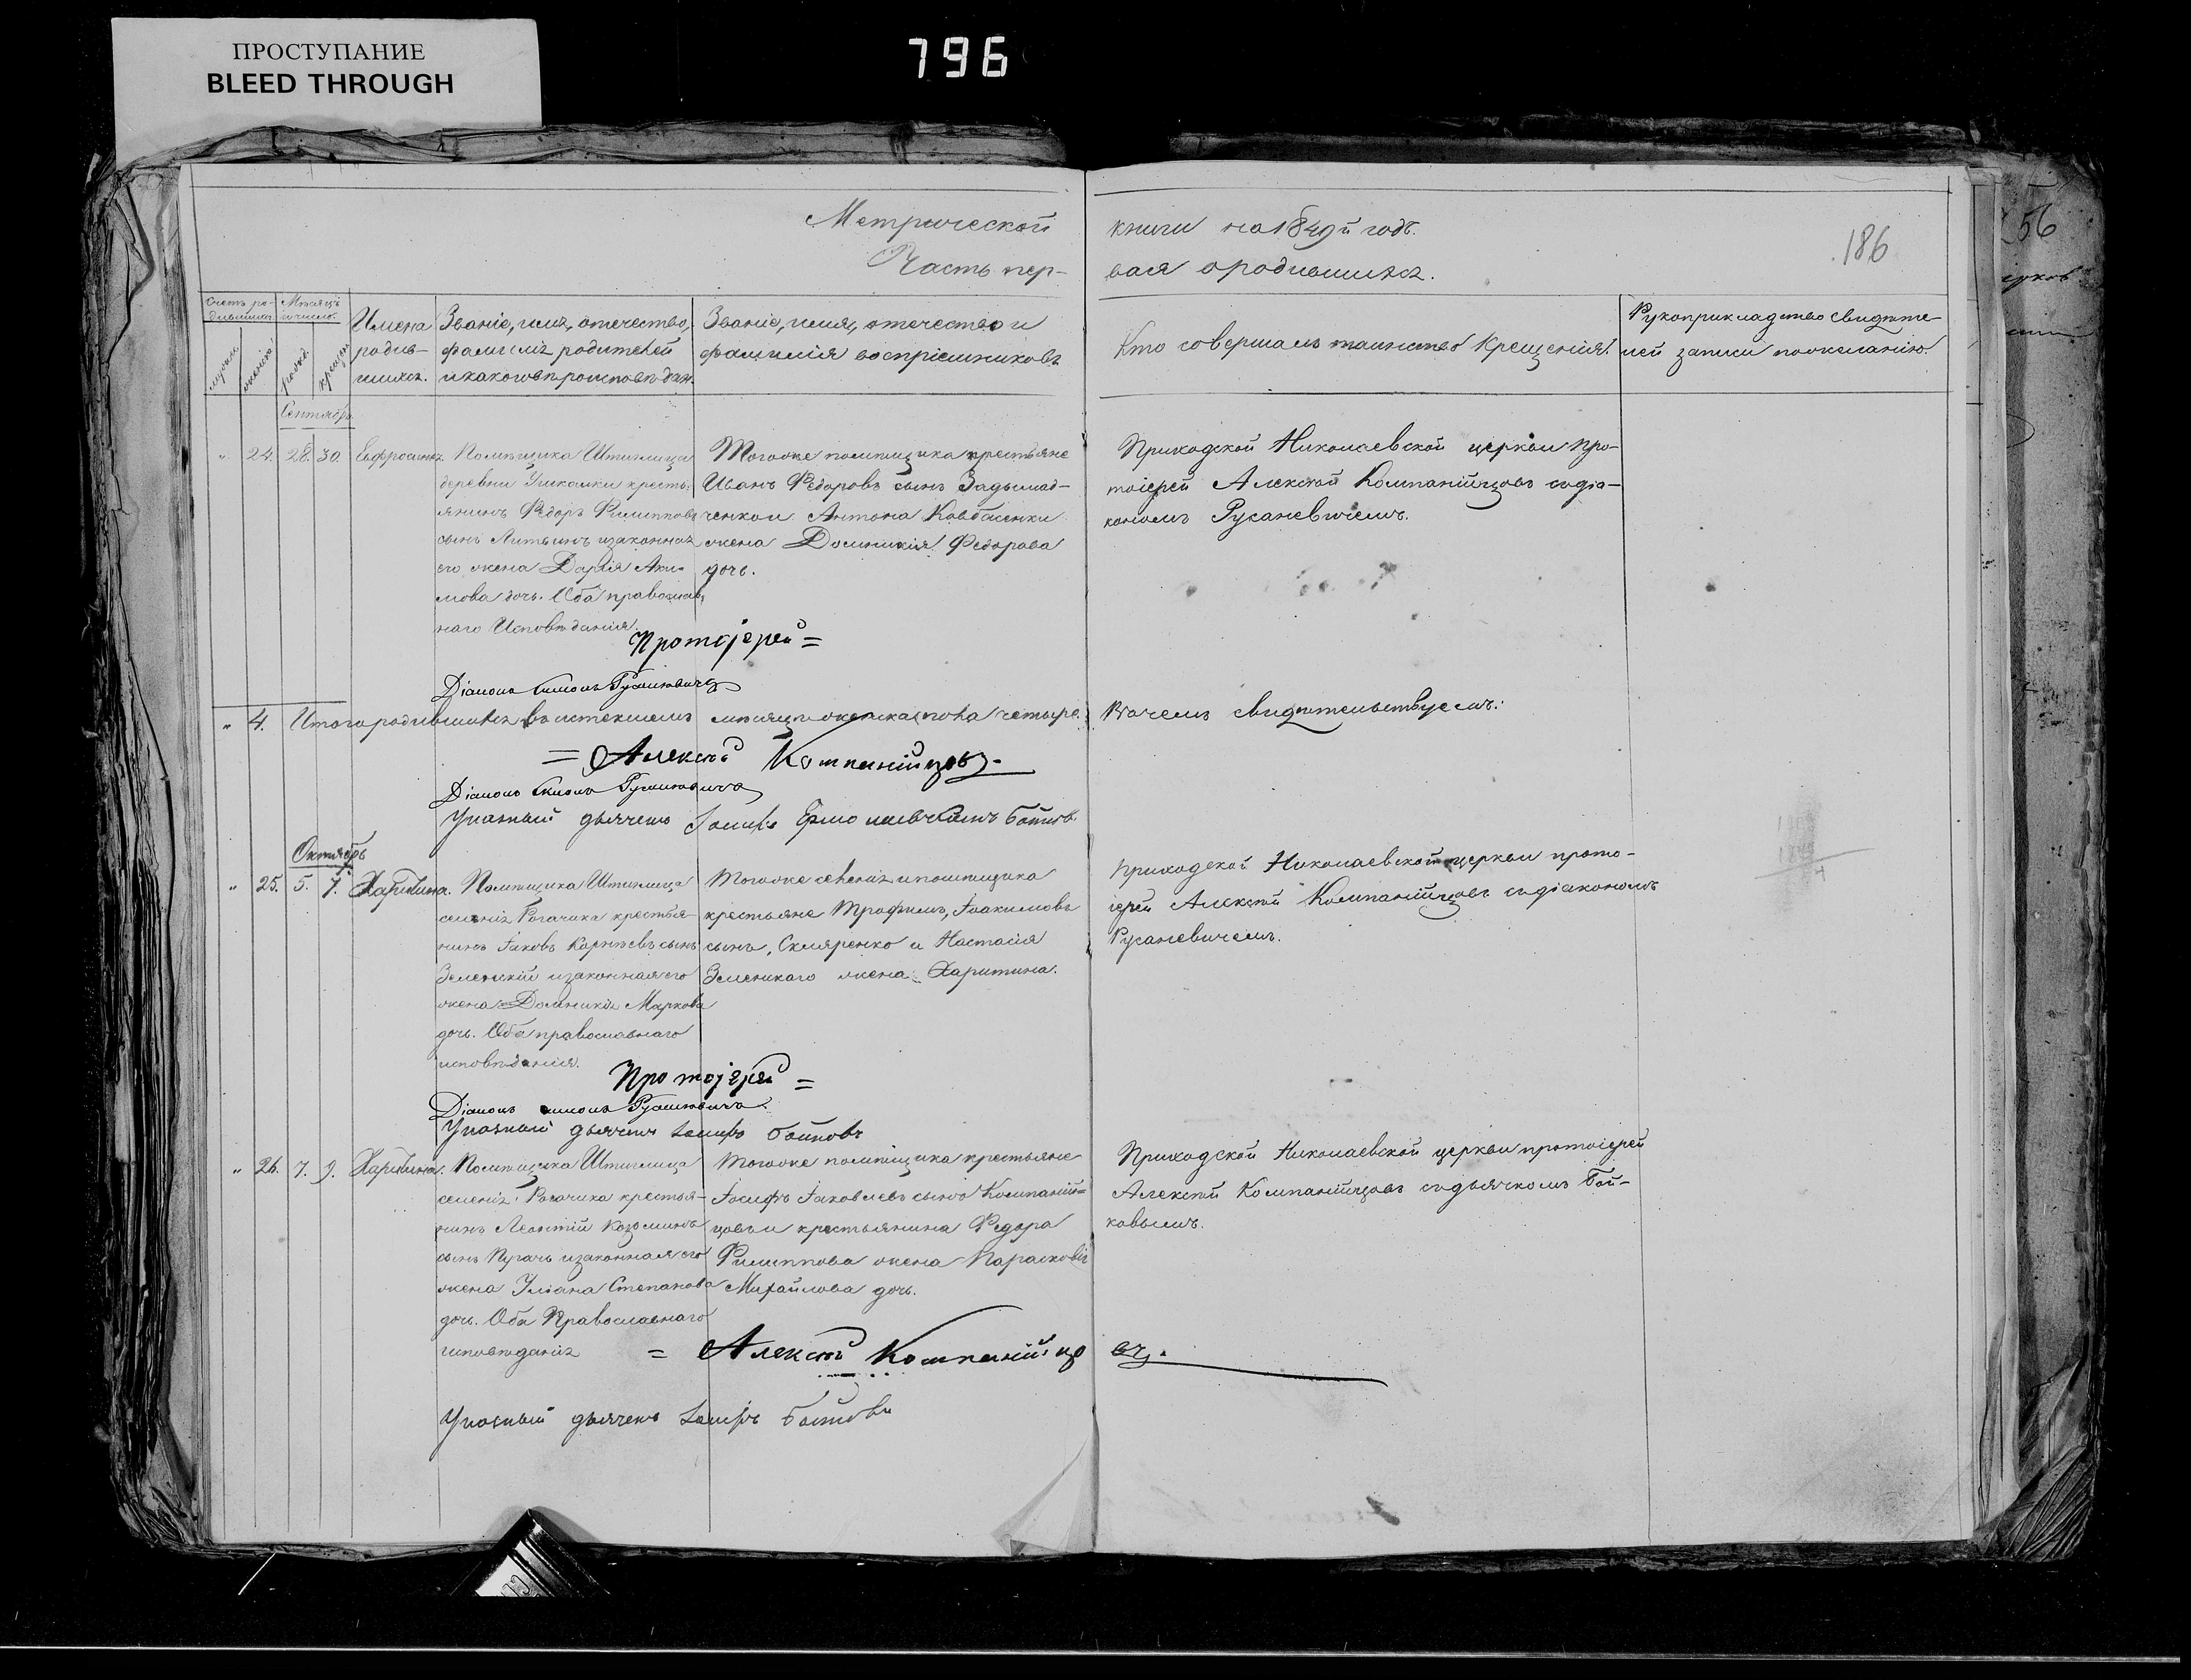 ПРОСТУПАНИЕ
BLEED THROUGH
796
56
Метрической книги на 1849й годъ.
186
Часть пер-вая о родившихся.
Счетъ ро-
дившихся
Мѣсяцъ
и число
мужеска
женска
рожд.
крещен.
Имена
родив-
шихся.
Званіе, имя, отечество,
фамилія родителей
и какого вѣроисповѣдан.
Званіе, имя, отечество и
фамилія воспріемниковъ
Кто совершалъ таинство Крещенія.
Рукоприкладство свидѣте-
лей записи по желанію.
Сентябрь
" 24. 28. 30. Евфросинія
Помѣщика Штиглица
деревни крестья-
янинъ Федоръ Филипповъ
сынъ Литвинъ и законная
его жена Дарія Аки-
мова дочь. Оба православ-
наго Исповѣданія.
Тогоже помѣщика крестьяне
Иванъ Федоровъ сынъ Задымад-
ченко и Антона Ковбасенки
жена Домникія Федорова
дочь.
Приходской Николаевской церкви про-
тоіерей Алексѣй Компанійцовъ съ діа-
кономъ Русаневичемъ.
Протоіерей =
Діаконъ Симонъ Русаневичъ
" 4. Итого родившихся въ истекшемъ мѣсяцѣ женска пола четыре. Въ чемъ свидѣтельствуемъ:
= Алексѣй Компанійцовъ.
Діаконъ Симонъ Русаневичъ
Указный дьячекъ Іосифъ Бойковъ
Октябрь
" 25. 5. 7. Харитина.
Помѣщика Штиглица
селенія Рогачика крестья-
нинъ Іаковъ Карнѣевъ сынъ
Зеленскій и законная его
жена Домникія Маркова
дочь. Оба православнаго
исповѣданія.
Тогоже селенія и помѣщика
крестьяне Трофимъ, Іоакимовъ
сынъ, Скляренко и Настасія
Зеленскаго жена Харитина.
Приходской Николаевской церкви прото-
іерей Алексѣй Компанійцовъ съ діакономъ
Русаневичемъ.
Протоіерей =
Діаконъ Симонъ Русаневичъ
Указный дьячекъ Іосифъ Бойковъ
" 26. 7. 9. Харитина.
Помѣщика Штиглица
селенія Рогачика крестья-
нинъ Леонтій Козьминъ
сынъ Пугачъ и законная его
жена Уліана Степанова
дочь. Оба Православнаго
исповѣданія
Тогоже помѣщика крестьяне
Іосифъ Іаковлевъ сынъ Компаній-
цовъ и крестьянина Федора
Филиппова жена Параскевія
Михайлова дочь.
Приходской Николаевской церкви протоіерей
Алексѣй Компанійцовъ съ дьячкомъ Бой-
ковымъ.
= Алексѣй Компанійцовъ.
Указный дьячекъ Іосифъ Бойковъ